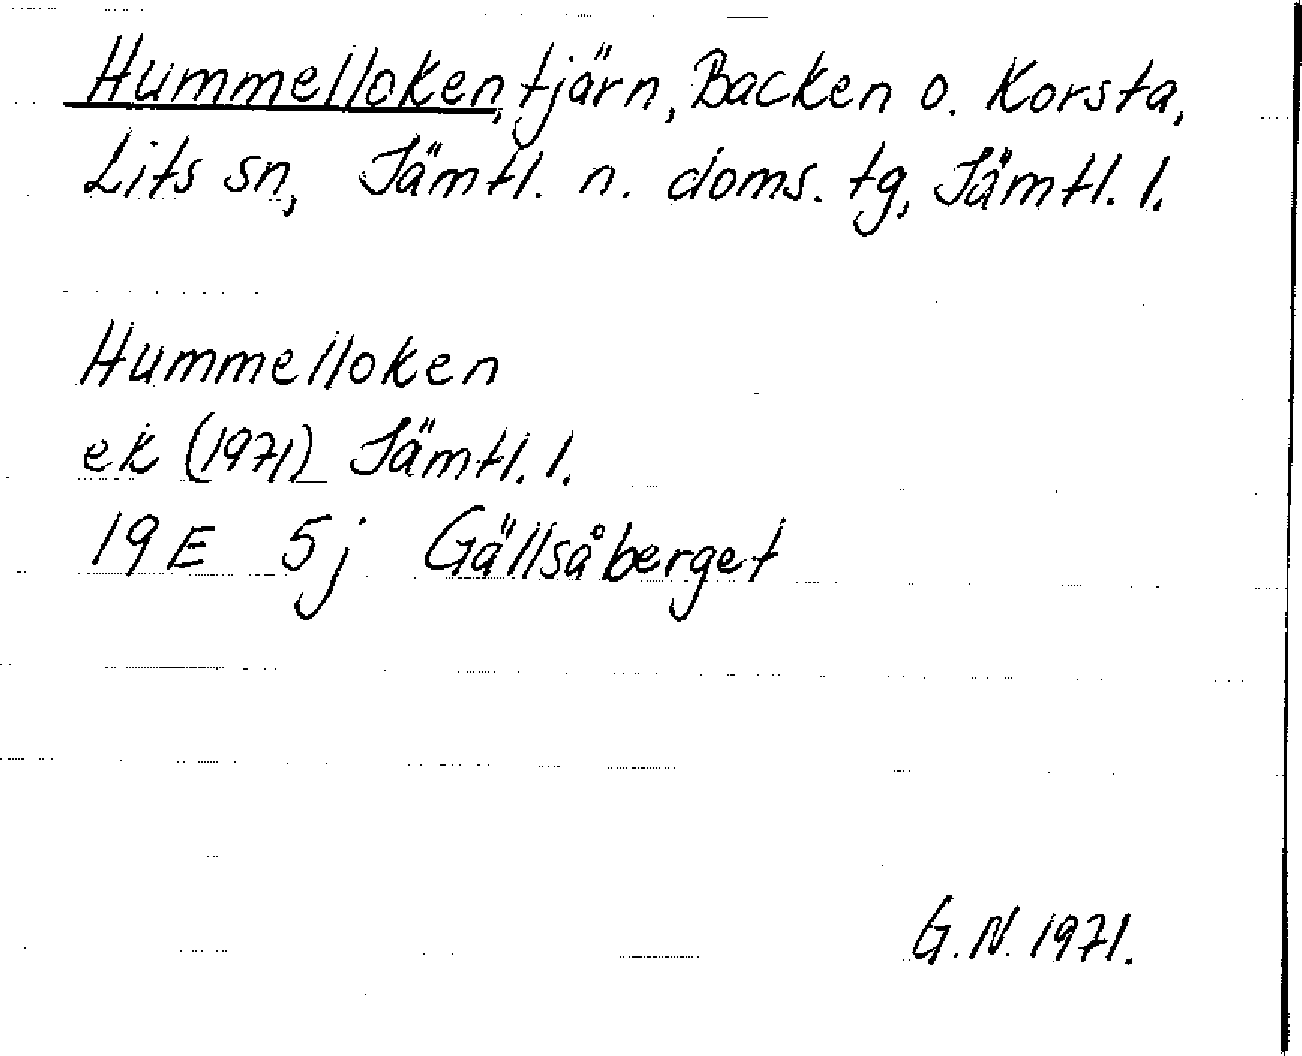 Hummelloken, tjärn, Backen o. Korsta,
Lits sn, Jämtl. n. doms. tg, Jämtl. l.
Hummelloken
ek (1971) Jämtl. l.
19 E 5j Gällsåberget
G.N. 1971.